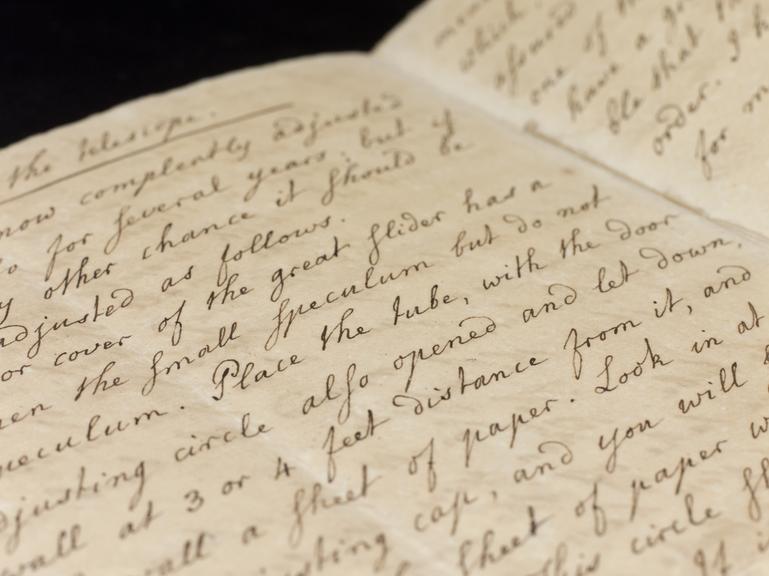 the telescope.
now compleatly adjusted
for several years. but if
other chance it should be
adjusted as follows.
or cover of the great slider has a
the small speculum but do not
speculum. Place the tube, with the door
adjusting circle also opened and let down,
wall at 3 or 4 feet distance from it, and
wall a sheet of paper. Look in at
cap, and you will
sheet of paper
this circle
If
which
one of
have a
ble that
order. I
for